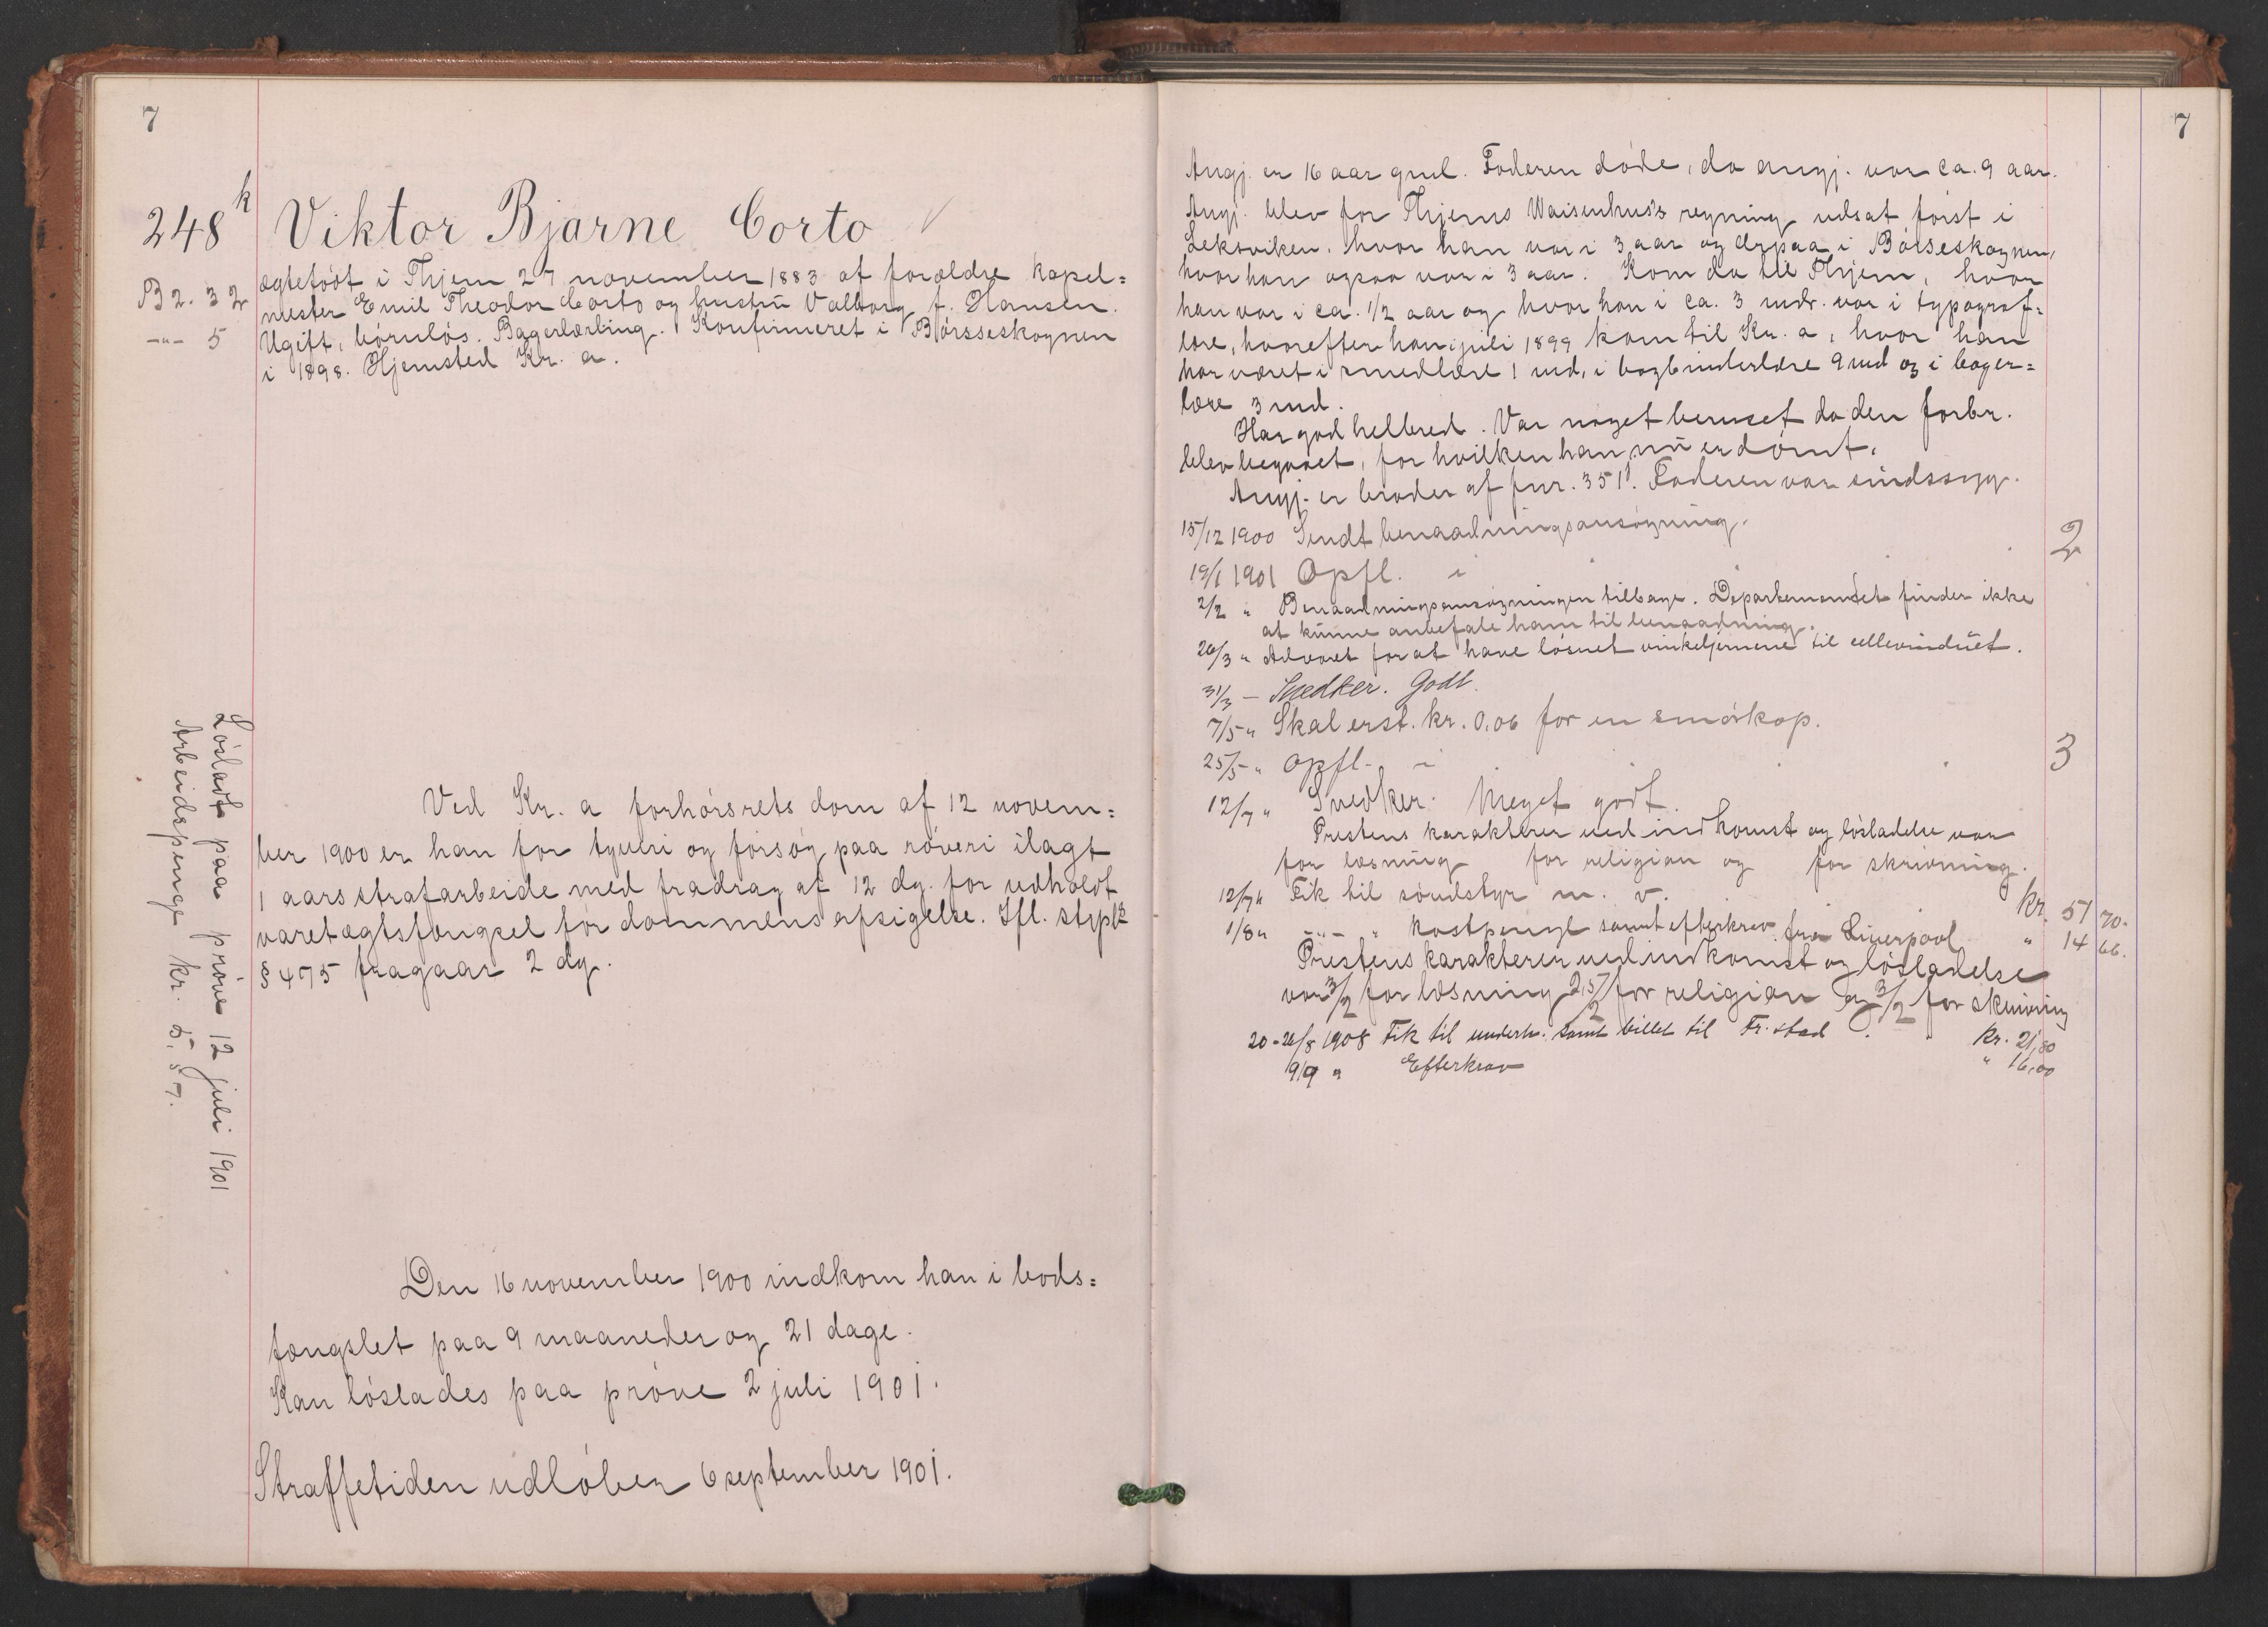 7
248 k
Viktor Bjarne Corto
B 2. 32
-"- 5
ægtefødt i Thjem 27 november 1883 af forældre kapel=
mester Emil Theodor Corto og hustru Valborg f. Hansen.
Ugift, børnløs. Bagerlærling. Konfirmeret i Børsseskognen
i 1898. Hjemsted Kr. a.
Løsladt paa prøve 12 juli 1901
Arbeidspenge kr. 5.57.
Ved Kr. a forhørsrets dom af 12 novem=
ber 1900 er han for tyveri og forsøg paa røveri ilagt
1 aars strafarbeide med fradrag af 12 dg. for udholdt
varetægtsfængsel før dommens afsigelse. Ifl. stpl.
§ 475 fragaar 2 dg.
Den 16 november 1900 indkom han i bods=
fængslet paa 9 maaneder og 21 dage.
Kan løslades paa prøve 2 juli 1901.
Straffetiden udløber 6 september 1901.
7
Angj. er 16 aar gml. Faderen døde, da angj. var ca. 9 aar.
Angj. blev for Thjems Waisenhus's regning udsat først i
Leksviken, hvor han var i 3 aar og derpaa i Børseskognen,
hvor han ogsaa var i 3 aar. Kom da til Thjem, hvor
han var i ca. 1/2 aar og hvor han i ca. 3 mdr. var i typograf=
lære, hvorefter han i juli 1899 kom til Kr. a, hvor han
har været i smedlære 1 md, i bogbinderlære 9 md og i bager=
lære 3 md.
Har god helbred. Var noget beruset da den forbr.
blev begaaet, for hvilken han nu er dømt.
Angj. er broder af fnr. 351. Faderen var sindssyg.
15/12 1900 Sendt benaadningsansøgning. 2
19/1 1901 Opfl. i
2/2 " Benaadningsansøgningen tilbage. Departementet finder ikke
at kunne anbefale ham til benaadning.
26/3 " Advaret for at have løsnet vinkeljernene til cellevinduet.
31/3 - Snedker. Godt.
7/5 " Skal erst. kr. 0,06 for en smørkop.
25/5 " Opfl. i 3
12/7 " Snedker. Meget godt.
Prestens karakterer ved indkomst og løsladelse var
for læsning for religion og for skrivning.
12/7 " Fik til søudstyr m. v. kr. 51 70.
1/8 " -"- " Kostpenge samt efterkrav fra Liverpool " 14 66.
Prestens karakterer ved indkomst og løsladelse
var 3/2 for læsning 2,5/2 for religion og 3/2 for skrivning
20-26/8 1908 Fik til underh. samt billet til Fr. stad kr. 21,80
9/9 " Efterkrav " 16,00